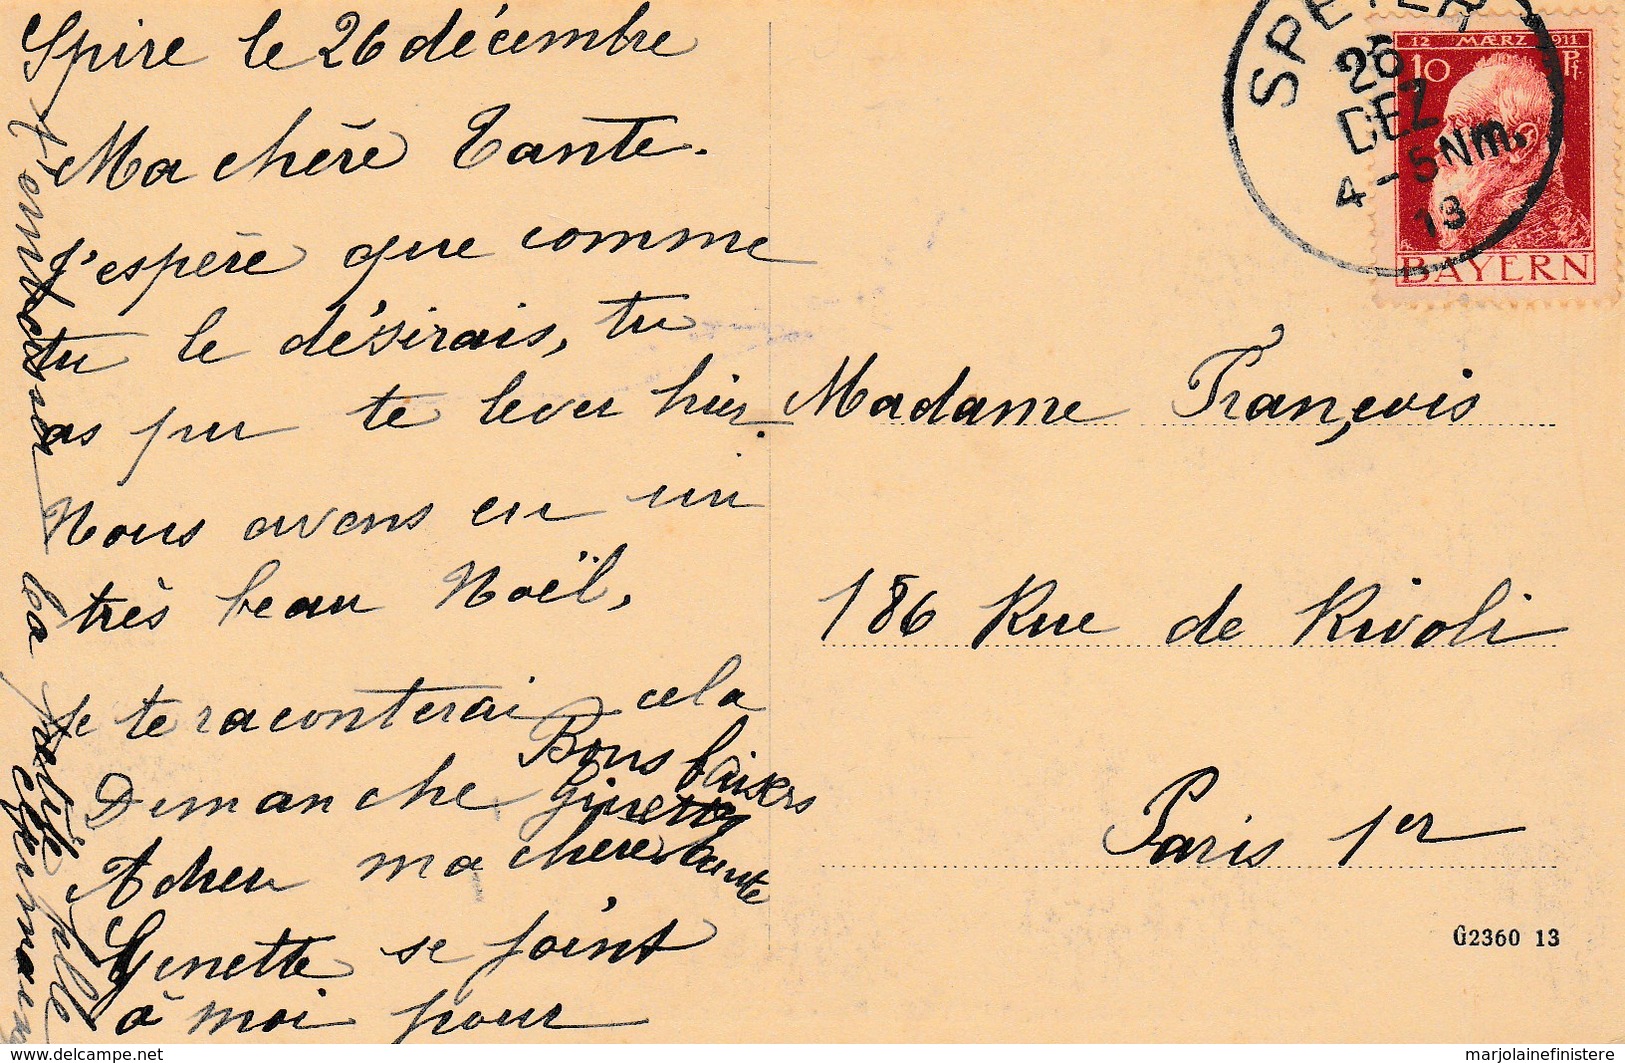 Spire le 26 décembre
Ma chère Tante.
J'espère que comme
tu le désirais, tu
as pu te lever hier.
Nous avons eu un
très beau Noël,
je te raconterai cela
Dimanche
Adieu ma chère tante
Ginette se joint
à moi pour
t'embrasser
ta petite fille
Germaine
Bons baisers
Ginette
Madame François
186 Rue de Rivoli
Paris 1er
SPEYER
26
DEZ
4-5Nm.
13
12 MÆRZ 1911
10 Pf.
BAYERN
G2360 13
www.delcampe.net
marjolainefinistere